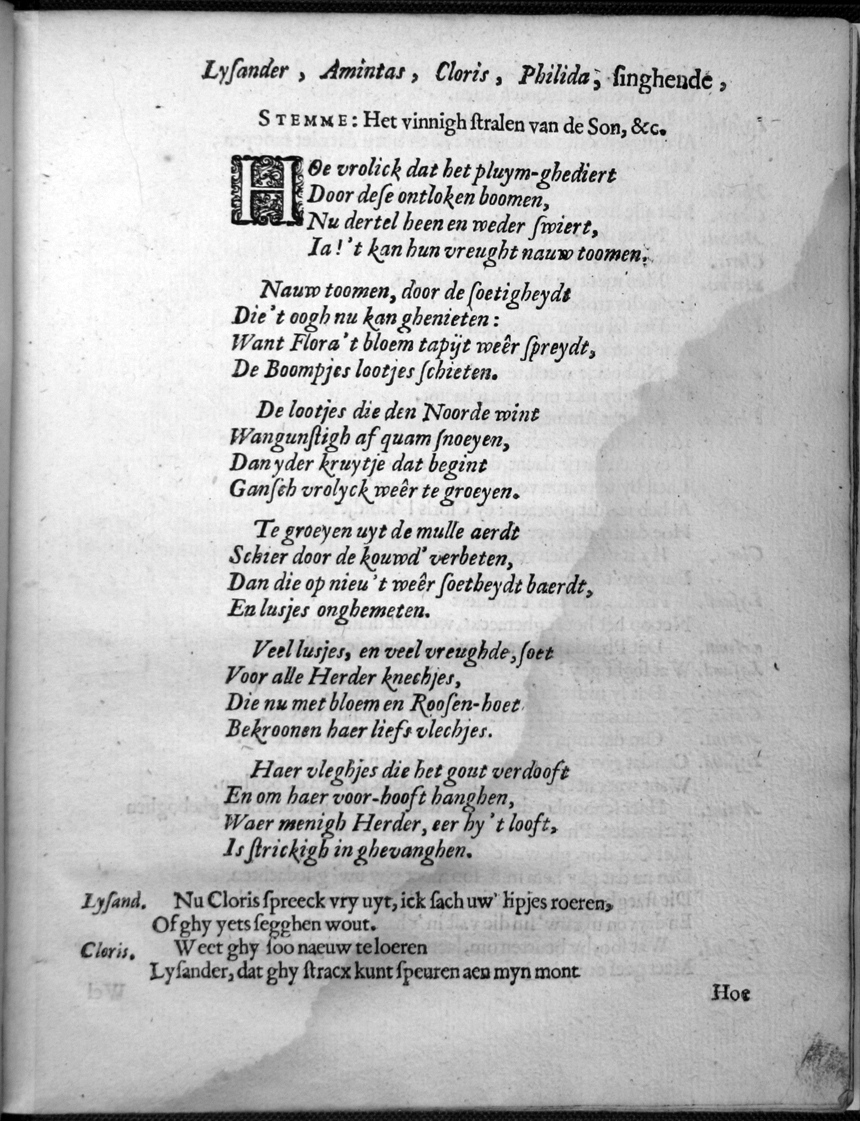 Lyſander, Amintas, Cloris, Philida, ſinghende,
STEMME: Het vinnigh ſtralen van de Son, &c.
HOe vrolick dat het pluym-ghediert
Door deſe ontloken boomen,
Nu dertel heen en weder ſwiert,
Ia! 't kan hun vreught nauw toomen.
Nauw toomen, door de ſoetigheydt
Die 't oogh nu kan ghenieten:
Want Flora 't bloem tapijt weêr ſpreydt,
De Boompjes lootjes ſchieten.
De lootjes die den Noorde wint
Wangunſtigh af quam ſnoeyen,
Dan yder kruytje dat begint
Ganſch vrolyck weêr te groeyen.
Te groeyen uyt de mulle aerdt
Schier door de kouwd' verbeten,
Dan die op nieu 't weêr ſoetheydt baerdt,
En lusjes onghemeten.
Veel lusjes, en veel vreughde, ſoet
Voor alle Herder knechjes,
Die nu met bloem en Rooſen-hoet
Bekroonen haer liefs vlechjes.
Haer vleghjes die het gout verdooft
En om haer voor-hooft hanghen,
Waer menigh Herder, eer hy 't looft,
Is ſtrickigh in ghevanghen.
Lyſand. Nu Cloris ſpreeck vry uyt, ick ſach uw' lipjes roeren,
Of ghy yets ſegghen wout.
Cloris. Weet ghy ſoo naeuw te loeren
Lyſander, dat ghy ſtracx kunt ſpeuren aen myn mont
Hoe